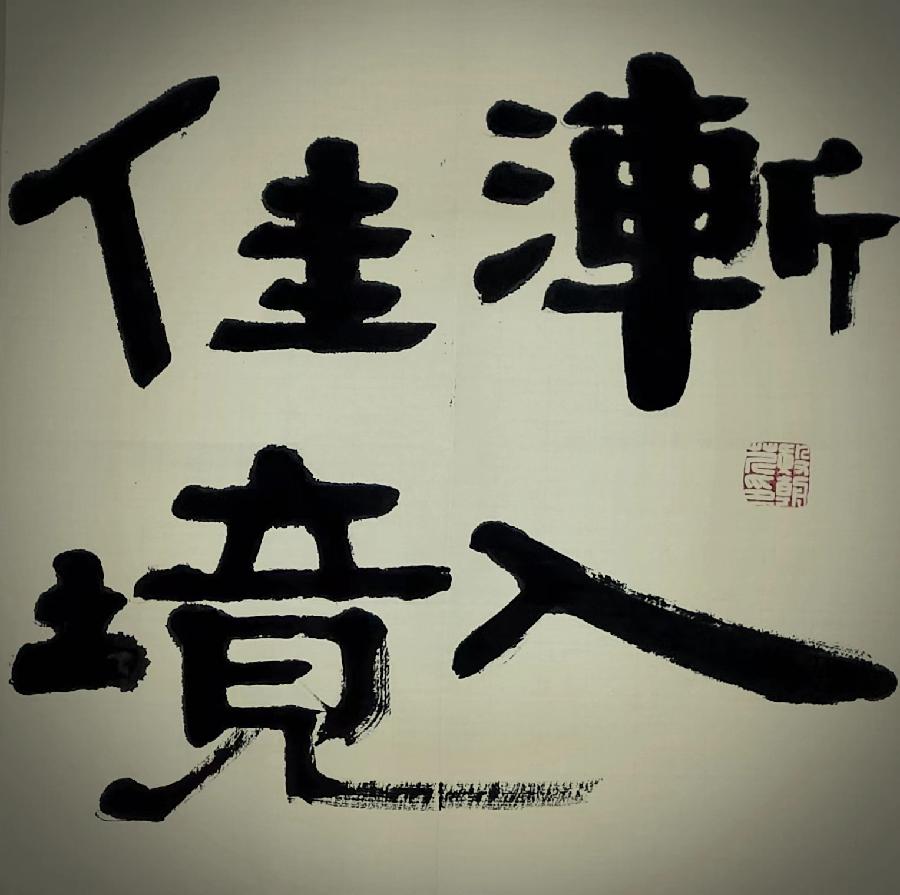 漸入
佳境